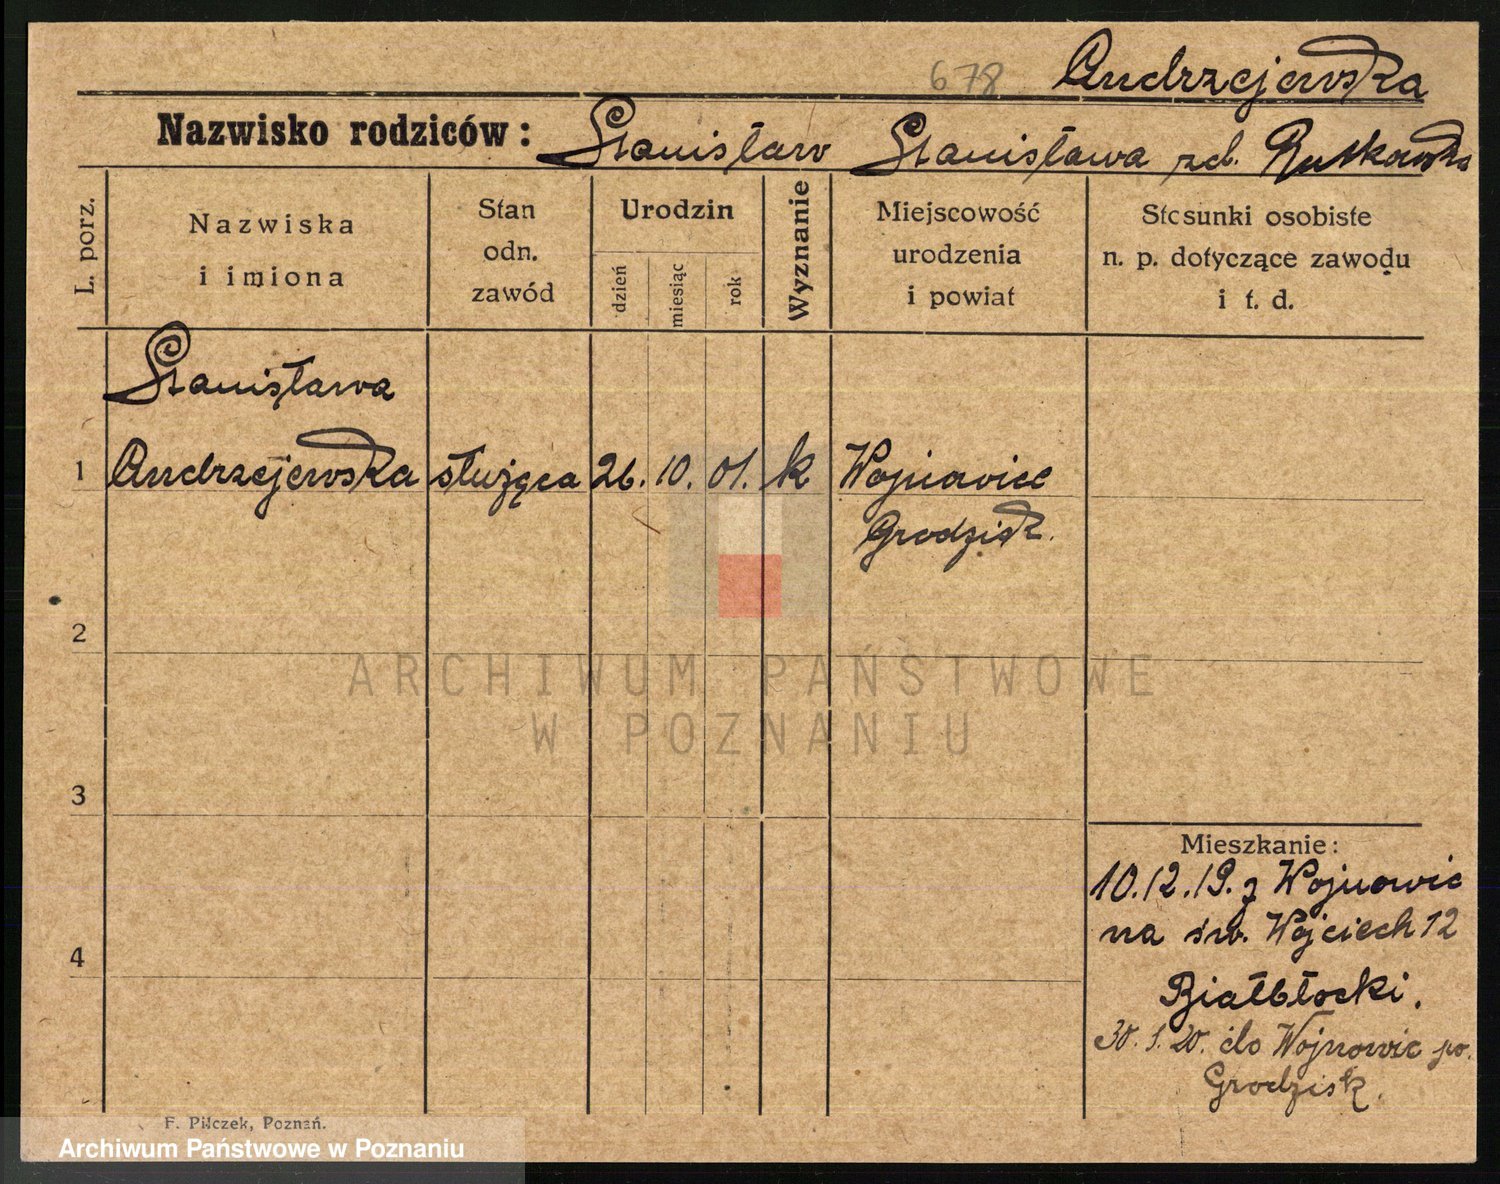 678 Andrzejewska
Nazwisko rodziców: Stanisław Stanisława zd. Rutkowska
L. porz.
Nazwiska
i imiona
Stan
odn.
zawód
Urodzin
dzień
miesiąc
rok
Wyznanie
Miejscowość
urodzenia
i powiat
Stosunki osobiste
n. p. dotyczące zawodu
i t. d.
Stanisława
1 Andrzejewska służąca 26. 10. 01. k Wojnowice
Grodzisk.
2
ARCHIWUM PAŃSTWOWE
W POZNANIU
3
Mieszkanie:
10.12.19. z Wojnowic
na św. Wojciech 12
4
Białbłocki.
30. 1. 20. do Wojnowic po.
Grodzisk.
F. Pilczek, Poznań.
Archiwum Państwowe w Poznaniu